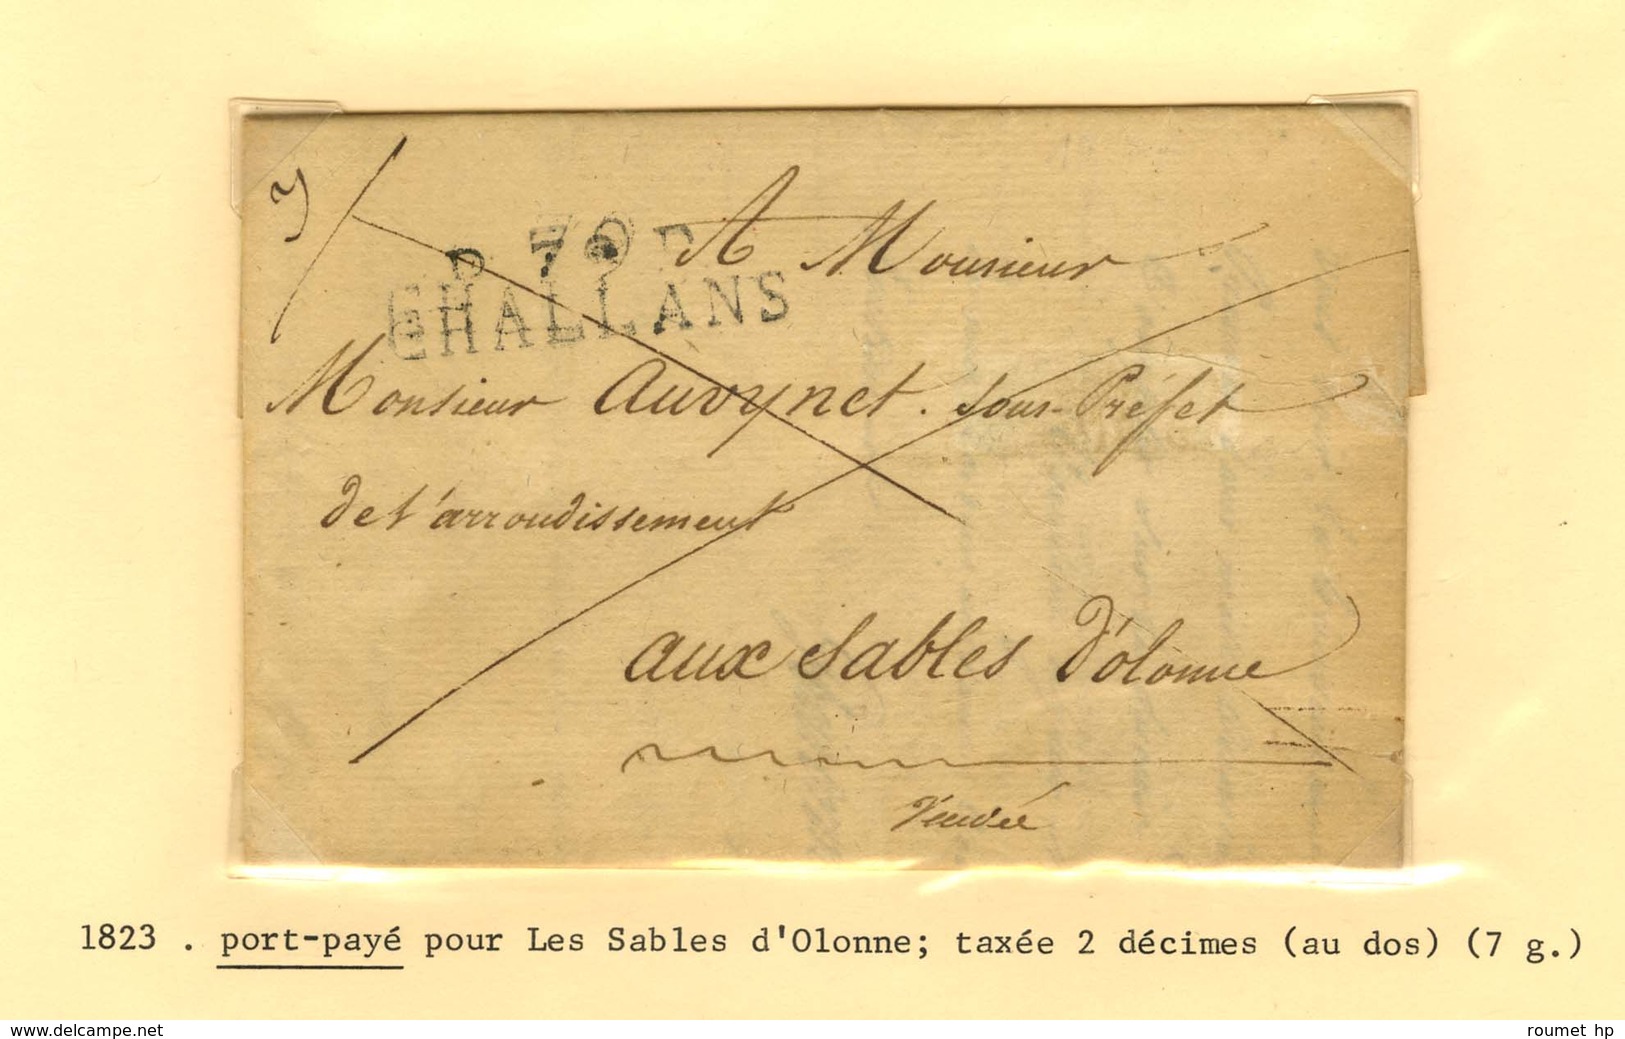 7
P 79 P
CHALLANS
A Monsieur
Monsieur Auvynet. Sous-Préfet
de l'arrondissement
aux Sables d'olonne
Vendée
1823 . port-payé pour Les Sables d'Olonne; taxée 2 décimes (au dos) (7 g.)
www.delcampe.net
roumet hp